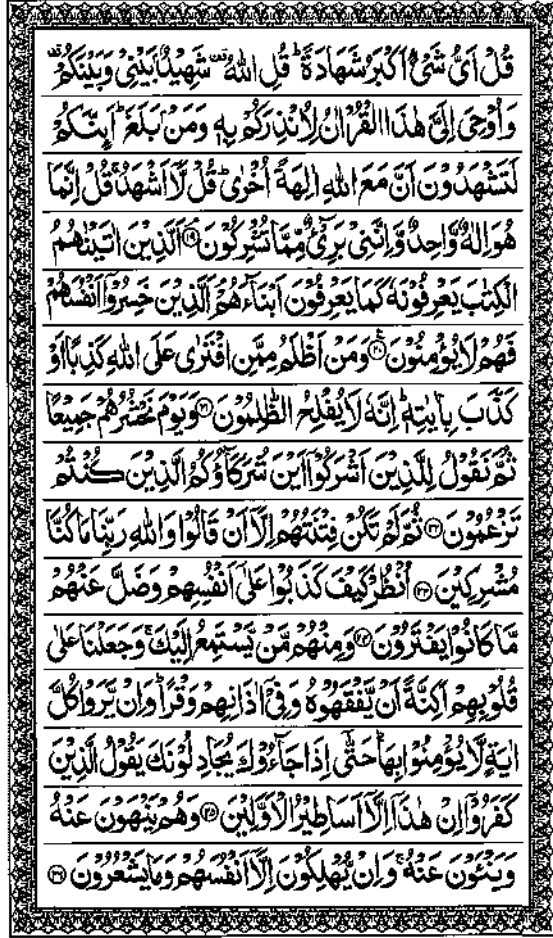 قُلْ اَیُّ شَیْءٍ اَكْبَرُ شَهَادَةًؕ قُلِ اللّٰهُ ۙ۫ شَهِیْدٌۢ بَیْنِیْ وَ بَیْنَكُمْ ۫
وَ اُوْحِیَ اِلَیَّ هٰذَا الْقُرْاٰنُ لِاُنْذِرَكُمْ بِهٖ وَ مَنْۢ بَلَغَؕ اَىِٕنَّكُمْ
لَتَشْهَدُوْنَ اَنَّ مَعَ اللّٰهِ اٰلِهَةً اُخْرٰیؕ قُلْ لَّاۤ اَشْهَدُۚ قُلْ اِنَّمَا
هُوَ اِلٰهٌ وَّاحِدٌ وَّ اِنَّنِیْ بَرِیْٓءٌ مِّمَّا تُشْرِكُوْنَ ۱۹ اَلَّذِیْنَ اٰتَیْنٰهُمُ
الْكِتٰبَ یَعْرِفُوْنَهٗ كَمَا یَعْرِفُوْنَ اَبْنَآءَهُمْۘ اَلَّذِیْنَ خَسِرُوْۤا اَنْفُسَهُمْ
فَهُمْ لَا یُؤْمِنُوْنَ ۲۰ وَ مَنْ اَظْلَمُ مِمَّنِ افْتَرٰی عَلَی اللّٰهِ كَذِبًا اَوْ
كَذَّبَ بِاٰیٰتِهٖؕ اِنَّهٗ لَا یُفْلِحُ الظّٰلِمُوْنَ ۲۱ وَ یَوْمَ نَحْشُرُهُمْ جَمِیْعًا
ثُمَّ نَقُوْلُ لِلَّذِیْنَ اَشْرَكُوْۤا اَیْنَ شُرَكَآؤُكُمُ الَّذِیْنَ كُنْتُمْ
تَزْعُمُوْنَ ۲۲ ثُمَّ لَمْ تَكُنْ فِتْنَتُهُمْ اِلَّاۤ اَنْ قَالُوْا وَ اللّٰهِ رَبِّنَا مَا كُنَّا
مُشْرِكِیْنَ ۲۳ اُنْظُرْ كَیْفَ كَذَبُوْا عَلٰۤی اَنْفُسِهِمْ وَ ضَلَّ عَنْهُمْ
مَّا كَانُوْا یَفْتَرُوْنَ ۲۴ وَ مِنْهُمْ مَّنْ یَّسْتَمِعُ اِلَیْكَۚ وَ جَعَلْنَا عَلٰی
قُلُوْبِهِمْ اَكِنَّةً اَنْ یَّفْقَهُوْهُ وَ فِیْۤ اٰذَانِهِمْ وَقْرًاؕ وَ اِنْ یَّرَوْا كُلَّ
اٰیَةٍ لَّا یُؤْمِنُوْا بِهَاؕ حَتّٰۤی اِذَا جَآءُوْكَ یُجَادِلُوْنَكَ یَقُوْلُ الَّذِیْنَ
كَفَرُوْۤا اِنْ هٰذَاۤ اِلَّاۤ اَسَاطِیْرُ الْاَوَّلِیْنَ ۲۵ وَ هُمْ یَنْهَوْنَ عَنْهُ
وَ یَنْـَٔوْنَ عَنْهُۚ وَ اِنْ یُّهْلِكُوْنَ اِلَّاۤ اَنْفُسَهُمْ وَ مَا یَشْعُرُوْنَ ۲۶